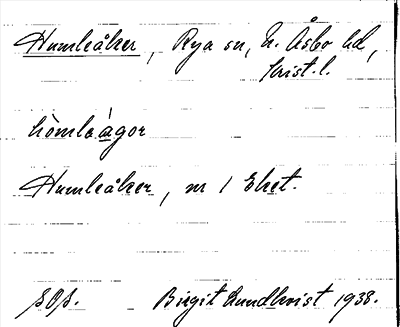 Humleåker, Rya sn, N. Åsbo hd,
Krist. l.
hòmləágor
Humleåker, nr 1 Ehet.
SOS. Birgit Lundkvist 1938.